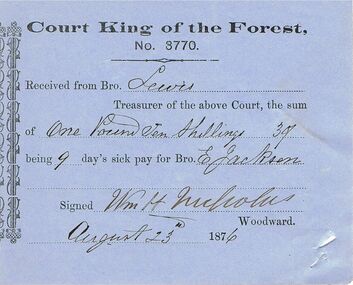 Court King of the Forest,
No. 3770.
Received from Bro. Lewis
Treasurer of the above Court, the sum
of One Pound Ten Shillings 30/
being 9 day's sick pay for Bro. E Jackson
Signed Wm H Nicholas
Woodward.
August 23rd 1876